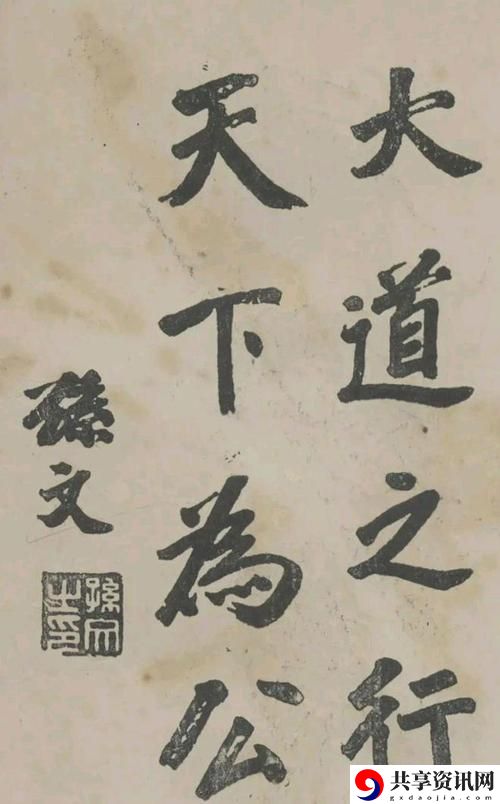 大道之行
天下為公
孫文
孫文之印
共享资讯网
gxdaojia.com